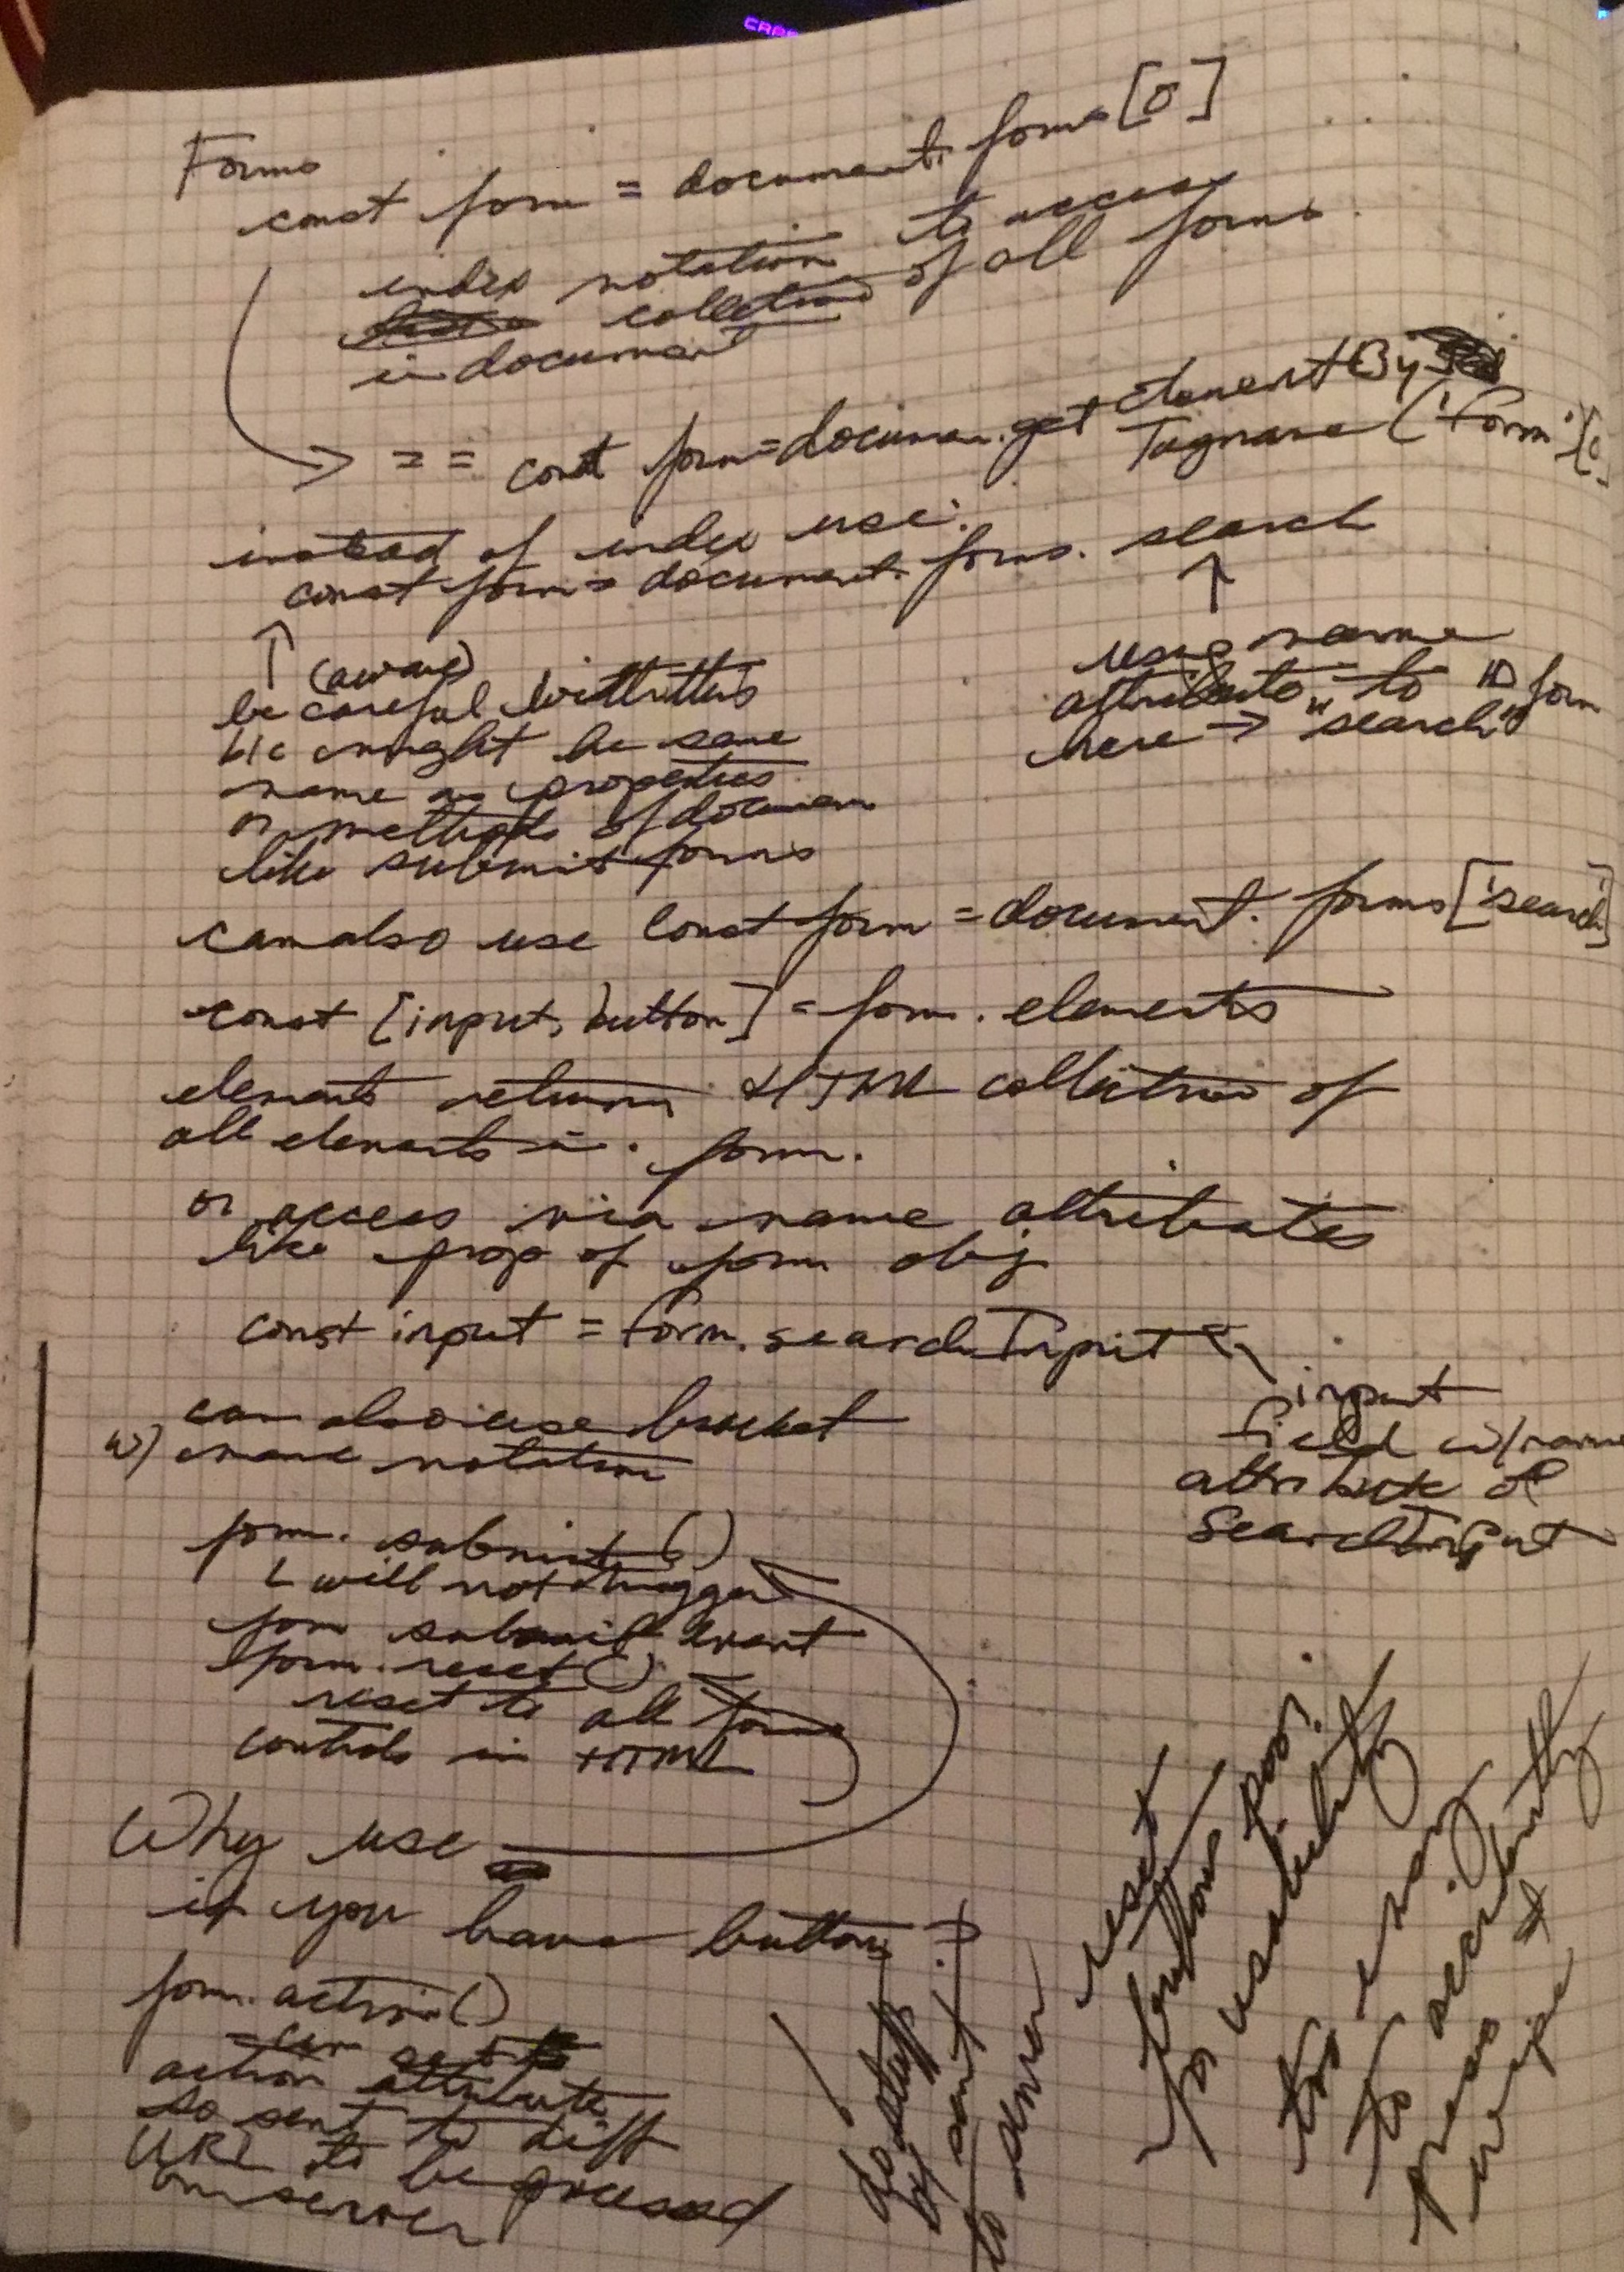 Forms
const form = document.forms[0]
index notation to access
collection of all forms
in document
== const form = documen.get ElementBy
Tagname('form')[0]
instead of index use:
const form = document.forms.search
(aware)
be careful
b/c might be same
name as properties
or methods of documen
like submit forms
using name
attribute to ID form
here → "search"
can also use const form = document.forms['search']
const [input, button] = form.elements
elements returns HTML collection of
all elements in form.
or access via name attributes
like prop of form obj
const input = form.searchInput
input
field w/name
attribute of
SearchInput
can also use bracket
w/ name notation
form.submit()
will not trigger
form submit event
form.reset()
reset to all form
controls in HTML
Why use
if you have button
form.action()
- can set
action attribute
so sent to diff
URL to be processed
on server
do stuff
b/f sent
to server
reset
buttons poor
for usability
too easy
to accidently
press &
wipe